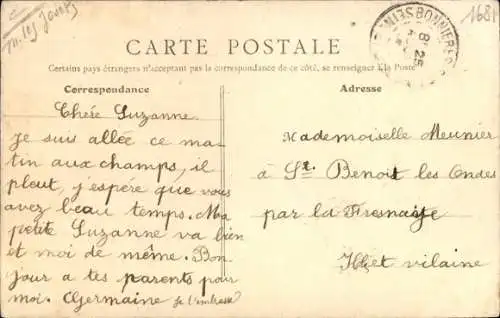 1681
CARTE POSTALE
Certains pays étrangers n'acceptant pas la correspondance de ce côté, se renseigner à la Poste
Correspondance
Chére Suzanne
Je suis allée ce ma-
tin aux champs, il
pleut, j'espére que vous
avez beau temps. Ma
petite Suzanne va bien
et moi de même. Bon
jour a tes parents pour
moi. Germaine je t'embrasse
Adresse
Mademoiselle Meunier
à St. Benoit les Ondes
par la Fresnaije
Illet vilaine